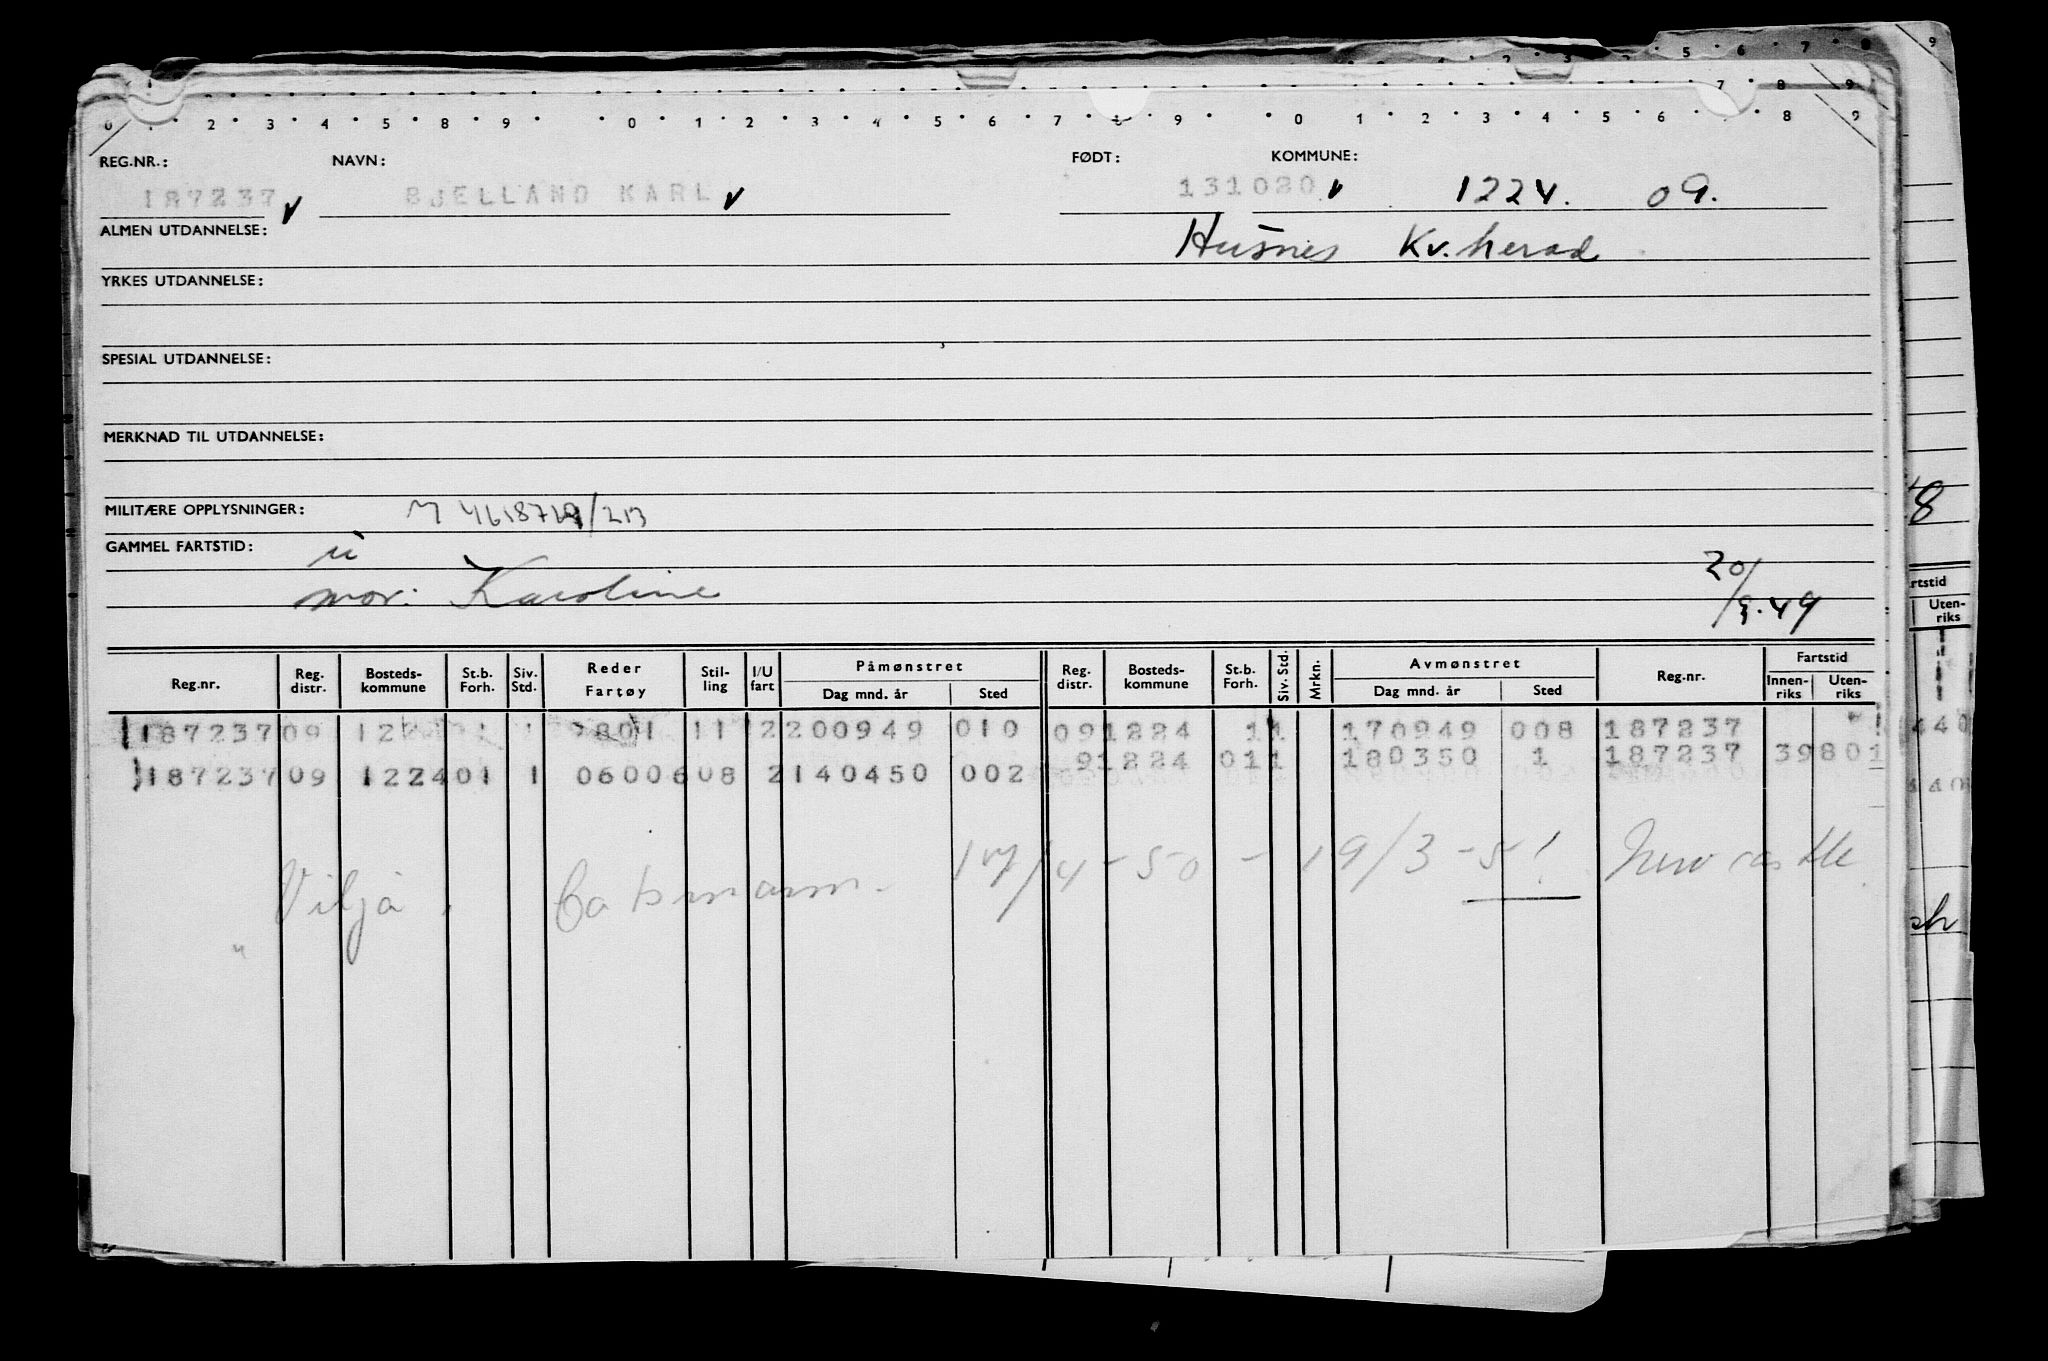 0 1 2 3 4 5 8 9 0 1 2 3 4 5 6 7 8 9 0 1 2 3 4 5 6 8 9
REG.NR.: NAVN: FØDT: KOMMUNE:
187237 BJELLAND KARL 131020 1224. 09.
ALMEN UTDANNELSE: Husnes Kv.herad
YRKES UTDANNELSE:
SPESIAL UTDANNELSE:
MERKNAD TIL UTDANNELSE:
MILITÆRE OPPLYSNINGER: M /213
GAMMEL FARTSTID: ü
mor: Karoline 20/9.49
Reg.nr. Reg. distr. Bosteds-kommune St.b. Forh. Siv. Std. Reder Fartøy Stil-ling I/U fart Påmønstret Dag mnd. år Sted Reg. distr. Bosteds-kommune St.b. Forh. Siv. Std. Mrkn. Avmønstret Dag mnd. år Sted Reg.nr. Fartstid Innen-riks Uten-riks
187237 09 1 9801 11 2 200949 010 09 1224 11 170949 008 187237
9 1224 011 180350 1 187237 39801
187237 09 1224 01 1 06006 08 2 140450 002
Viljà. Båtsmann. 17/4-50 - 19/3-51 Newcastle.
"